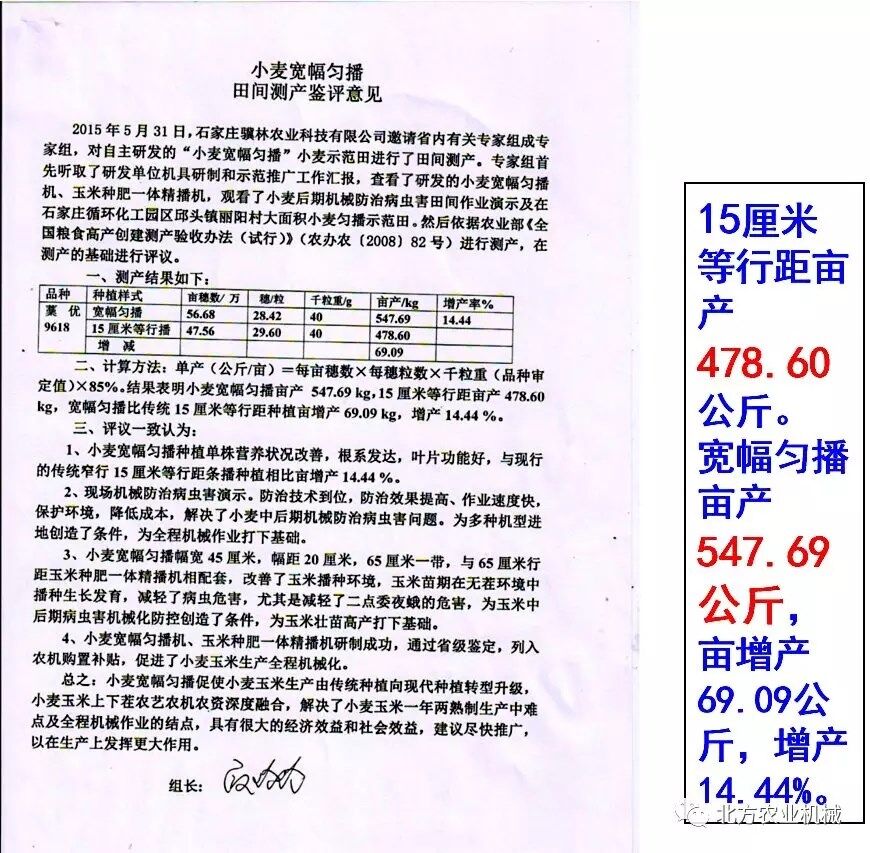 小麦宽幅匀播
田间测产鉴评意见
2015年5月31日，石家庄骥林农业科技有限公司邀请省内有关专家组成专
家组，对自主研发的“小麦宽幅匀播”小麦示范田进行了田间测产。专家组首
先听取了研发单位机具研制和示范推广工作汇报，查看了研发的小麦宽幅匀播
机、玉米种肥一体精播机，观看了小麦后期机械防治病虫害田间作业演示及在
石家庄循环化工园区邱头镇丽阳村大面积小麦匀播示范田。然后依据农业部《全
国粮食高产创建测产验收办法（试行）》（农办农〔2008〕82号）进行测产，在
测产的基础进行评议。
一、测产结果如下：
品种 种植样式 亩穗数/万 穗/粒 千粒重/g 亩产/kg 增产率%
藁优 宽幅匀播 56.68 28.42 40 547.69 14.44
9618 15厘米等行播 47.56 29.60 40 478.60
增 减 69.09
二、计算方法：单产（公斤/亩）＝每亩穗数×每穗粒数×千粒重（品种审
定值）×85%。结果表明小麦宽幅匀播亩产 547.69 kg，15厘米等行距亩产478.60
kg，宽幅匀播比传统15厘米等行距种植亩增产69.09 kg，增产14.44 %。
三、评议一致认为：
1、小麦宽幅匀播种植单株营养状况改善，根系发达，叶片功能好，与现行
的传统窄行15厘米等行距条播种植相比亩增产14.44 %。
2、现场机械防治病虫害演示。防治技术到位，防治效果提高、作业速度快，
保护环境，降低成本，解决了小麦中后期机械防治病虫害问题。为多种机型进
地创造了条件，为全程机械作业打下基础。
3、小麦宽幅匀播幅宽45厘米，幅距20厘米，65厘米一带，与65厘米行
距玉米种肥一体精播机相配套，改善了玉米播种环境，玉米苗期在无茬环境中
播种生长发育，减轻了病虫危害，尤其是减轻了二点委夜蛾的危害，为玉米中
后期病虫害机械化防控创造了条件，为玉米壮苗高产打下基础。
4、小麦宽幅匀播机、玉米种肥一体精播机研制成功，通过省级鉴定，列入
农机购置补贴，促进了小麦玉米生产全程机械化。
总之：小麦宽幅匀播促使小麦玉米生产由传统种植向现代种植转型升级，
小麦玉米上下茬农艺农机农资深度融合，解决了小麦玉米一年两熟制生产中难
点及全程机械作业的结点，具有很大的经济效益和社会效益，建议尽快推广，
以在生产上发挥更大作用。
组长：
15厘米
等行距亩
产
478.60
公斤。
宽幅匀播
亩产
547.69
公斤，
亩增产
69.09公
斤，增产
14.44%。
北方农业机械